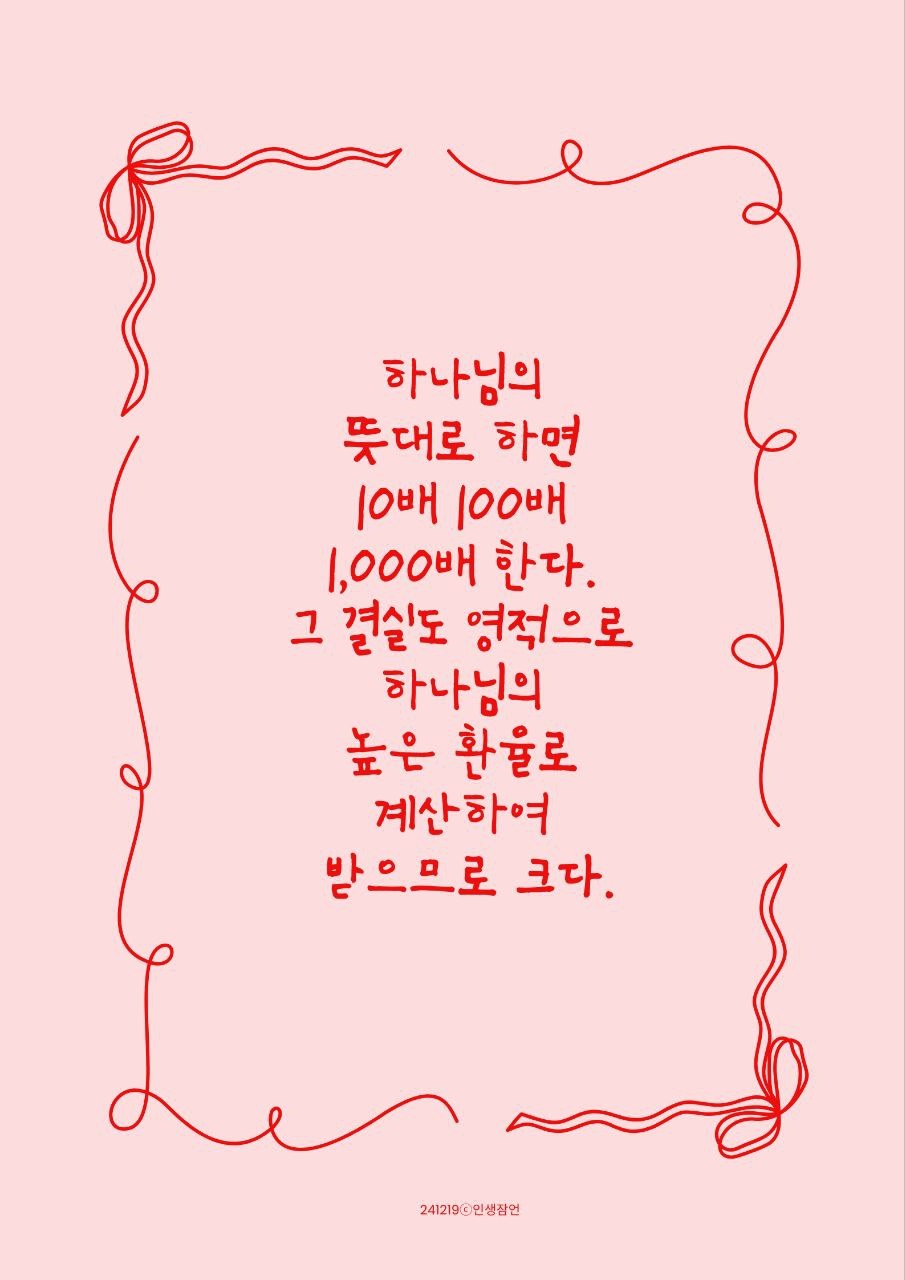 하나님의
뜻대로 하면
10배 100배
1,000배 한다.
그 결실도 영적으로
하나님의
높은 환율로
계산하여
받으므로 크다.
241219ⓒ인생잠언